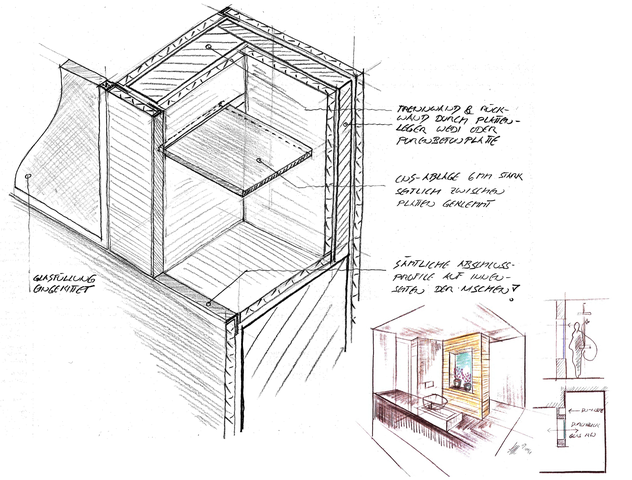 TRENNWAND & RÜCK-
WAND DURCH PLATTEN-
LEGER WEDI ODER
PORENBETONPLATTE
CNS-ABLAGE 6MM STARK
SEITLICH ZWISCHEN
PLATTEN GEKLEMMT
SÄMTLICHE ABSCHLUSS-
PROFILE AUF INNEN-
SEITEN DER NISCHEN!
GLASFÜLLUNG
EINGEKITTET